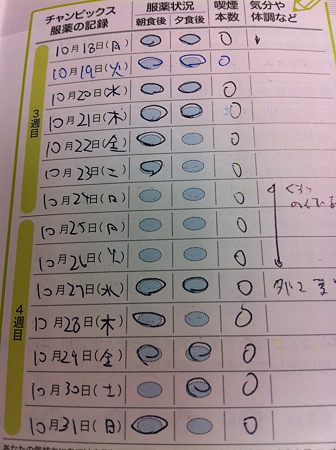 チャンピックス
服薬の記録
服薬状況
朝食後 夕食後
喫煙
本数
気分や
体調など
3週目
10月18日(月) 0
10月19日(火) 0
10月20日(水) 0
10月21日(木) 0
10月22日(金) 0
10月23日(土) 0
10月24日(日) 0
4週目
10月25日(月) 0
10月26日(火) 0
10月27日(水) 0
10月28日(木) 0
10月29日(金) 0
10月30日(土) 0
10月31日(日) 0